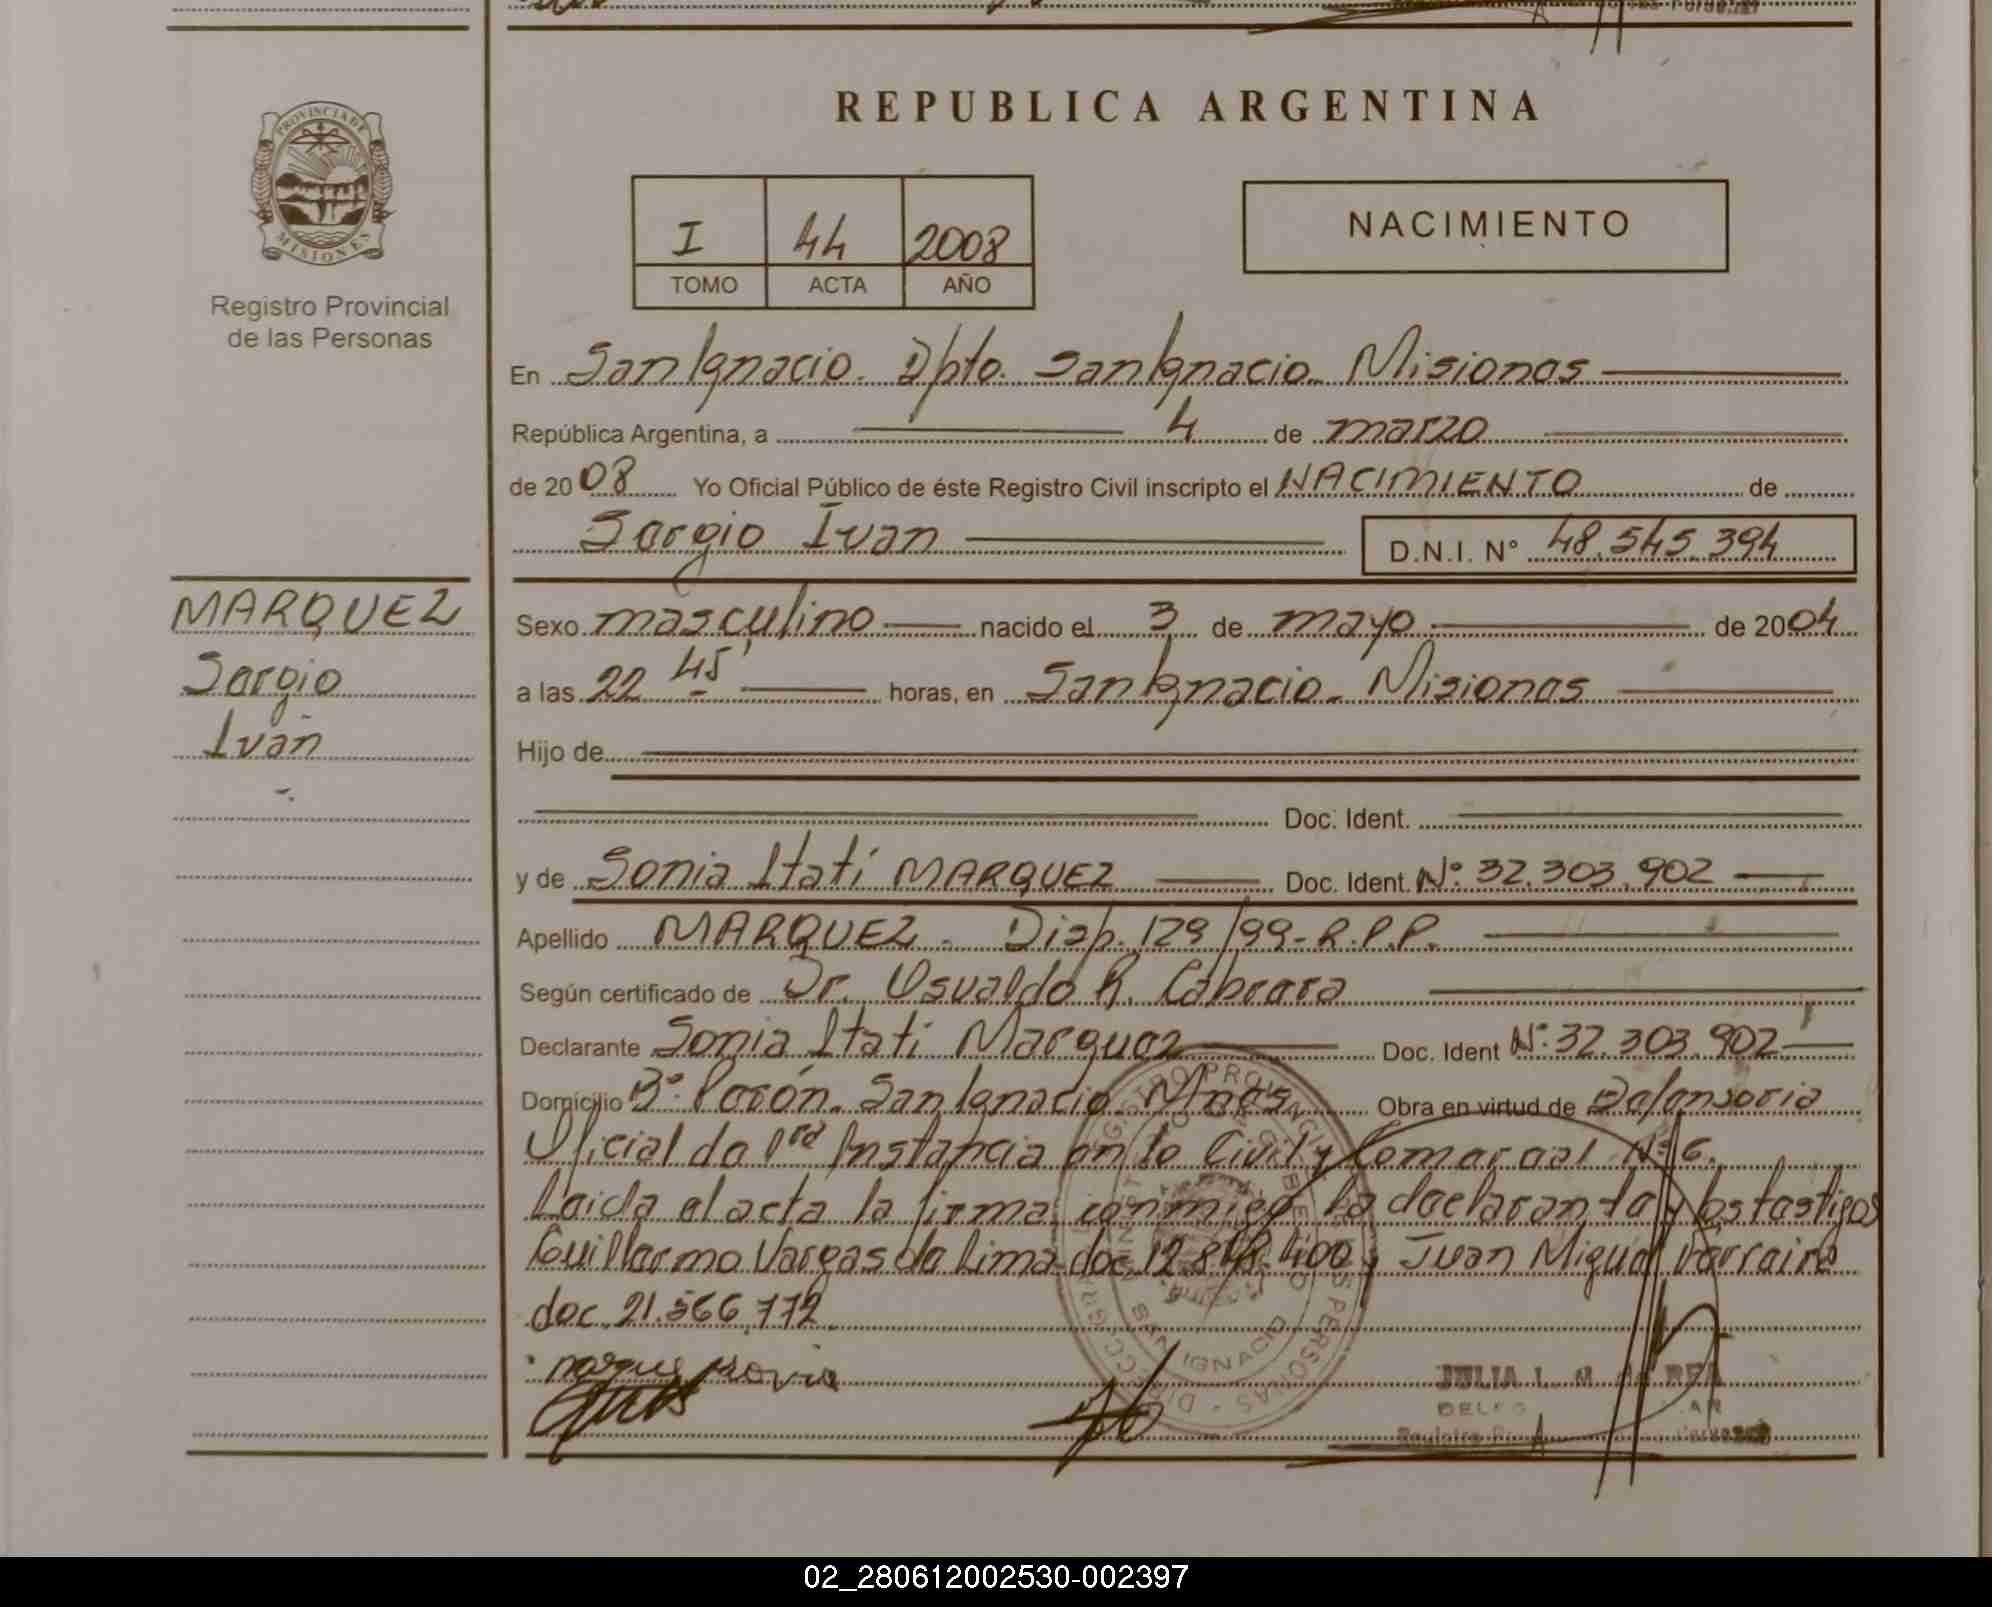 PROVINCIA DE
MISIONES
Registro Provincial
de las Personas
REPUBLICA ARGENTINA
I 44 2008
TOMO ACTA AÑO
NACIMIENTO
En San Ignacio. Dpto. San Ignacio. Misiones
República Argentina, a 4 de marzo
de 2008 Yo Oficial Público de éste Registro Civil inscripto el NACIMIENTO de
Sergio Ivan D.N.I. Nº 48.545.394
MARQUEZ
Sergio
Iván
Sexo masculino nacido el 3 de mayo de 2004
a las 22 45' horas, en San Ignacio - Misiones
Hijo de
Doc. Ident.
y de Sonia Itatí MARQUEZ Doc. Ident. Nº 32.303.902
Apellido MARQUEZ - Disp. 129/99 - R.P.P.
Según certificado de Dr. Osvaldo R. Cabrera
Declarante Sonia Itatí Marquez Doc. Ident Nº 32.303.902
Domicilio Bº Perón. San Ignacio. Mnes. Obra en virtud de Defensoria
Oficial de 1ra Instancia en lo Civil y Comercial Nº 6.
Leida el acta la firma conmigo la declarante y los testigos
Guillermo Vargas de Lima doc. y Juan Miguel
doc. 21.366.772
SAN IGNACIO
JULIA L. M. de